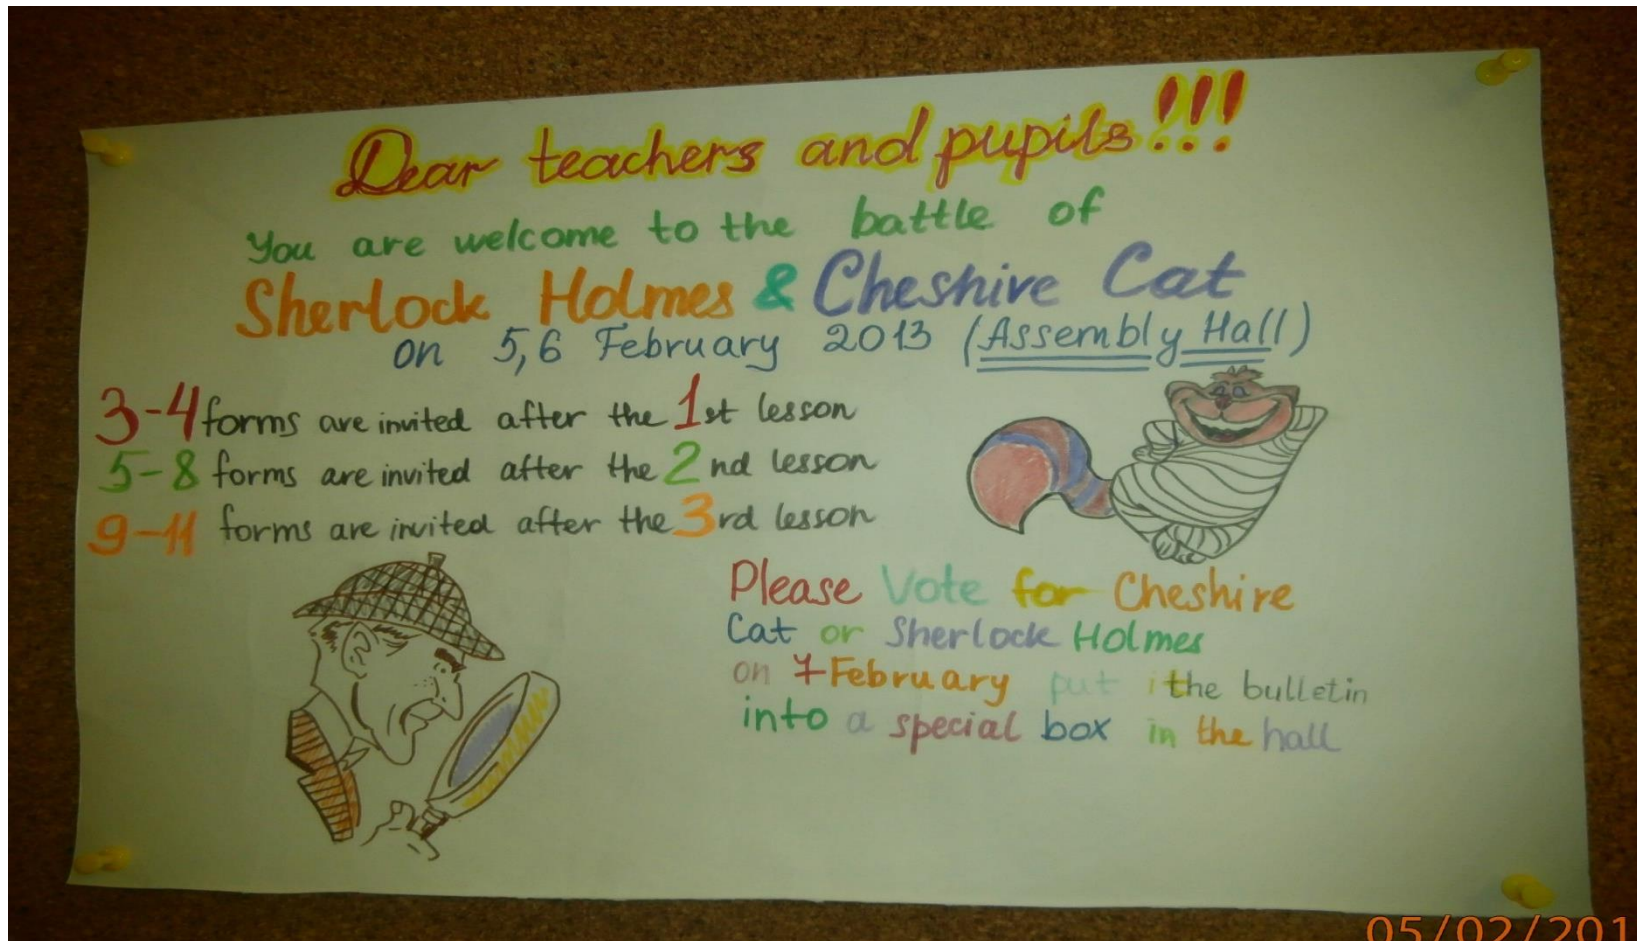 Dear teachers and pupils!!!
You are welcome to the battle of
Sherlock Holmes & Cheshire Cat
on 5,6 February 2013 (Assembly Hall)
3-4 forms are invited after the 1st lesson
5-8 forms are invited after the 2nd lesson
9-11 forms are invited after the 3rd lesson
Please Vote for Cheshire
Cat or Sherlock Holmes
on 7 February put the bulletin
into a special box in the hall
05/02/201